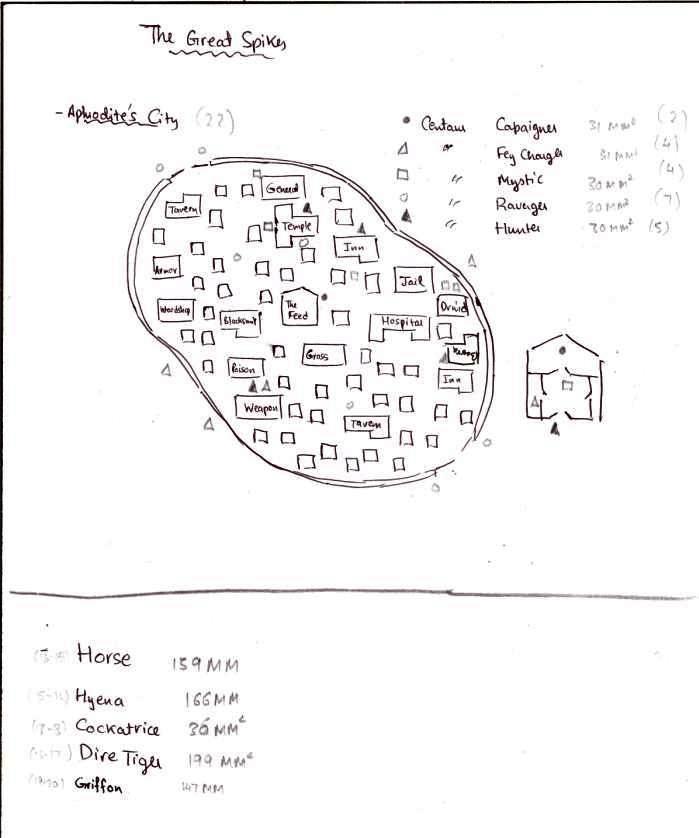 The Great Spikes
- Aphrodite's City (22)
Centaur Capaigner 31 MM² (2)
" Fey Charger 31 MM² (4)
" Mystic 30 MM² (4)
" Ravager 30 MM² (7)
" Hunter 30 MM² (5)
General
Tavern
Temple
Inn
Armor
Jail
Wordship
Blacksmit
The Feed
Druid
Hospital
Grass
Poison
Inn
Weapon
Tavern
Horse 159 MM
Hyena 166 MM
Cockatrice 36 MM²
Dire Tiger 199 MM²
Griffon 147 MM